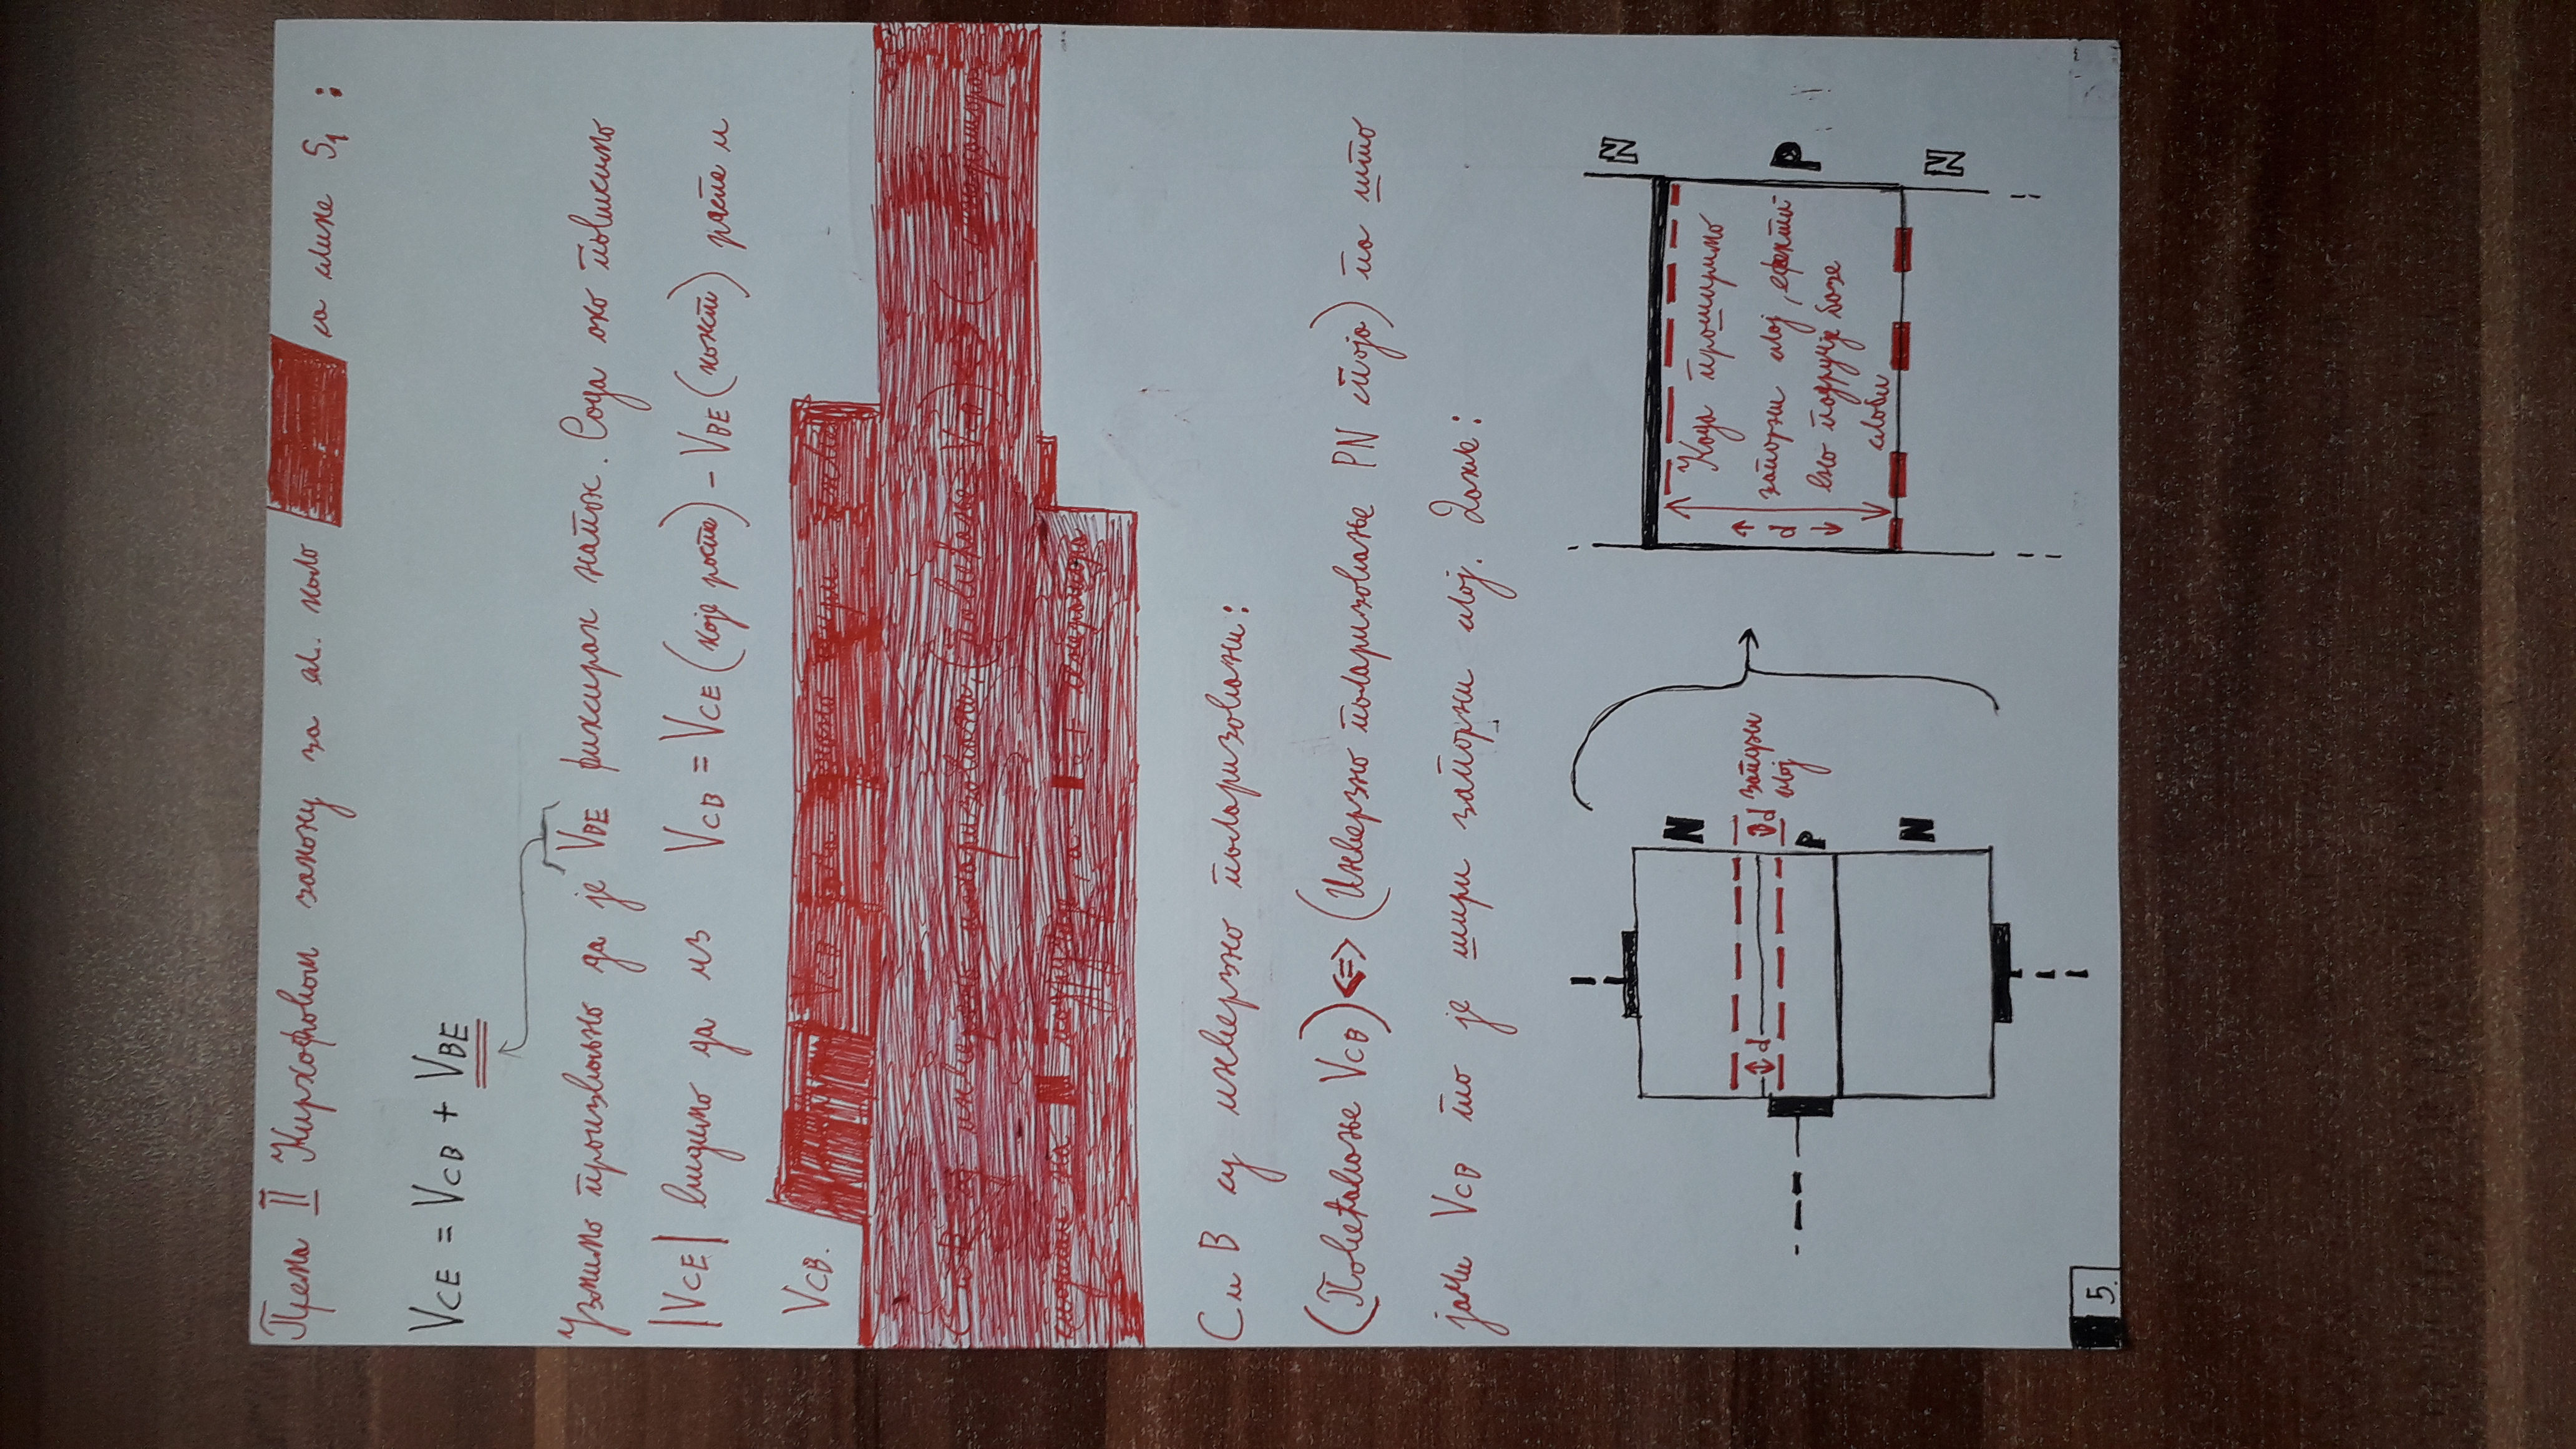 Према II Кирхофовом закону за ел. коло са слике S₁ :
VCE = VCB + VBE
Узмимо произвољно да је VBE фиксиран напон. Сада ако повисимо
|VCE| видимо да из VCB = VCE (које расте) - VBE (конст) расте и
VCB.
C и B су инверзно поларизовани:
(Повећавање VCB) <=> (Инверзно поларизовање PN споја) па што
јачи VCB то је шири запорни слој. Дакле:
N
d
d запорни
слој
P
N
N
Када проширимо
запорни слој, ефекти
вно подручје базе
слаби
d
P
N
5.